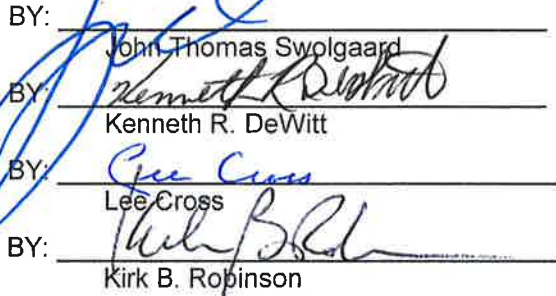 BY:
John Thomas Swolgaard
BY: Kenneth R DeWitt
Kenneth R. DeWitt
BY: Lee Cross
Lee Cross
BY: Kirk B. Rob
Kirk B. Robinson